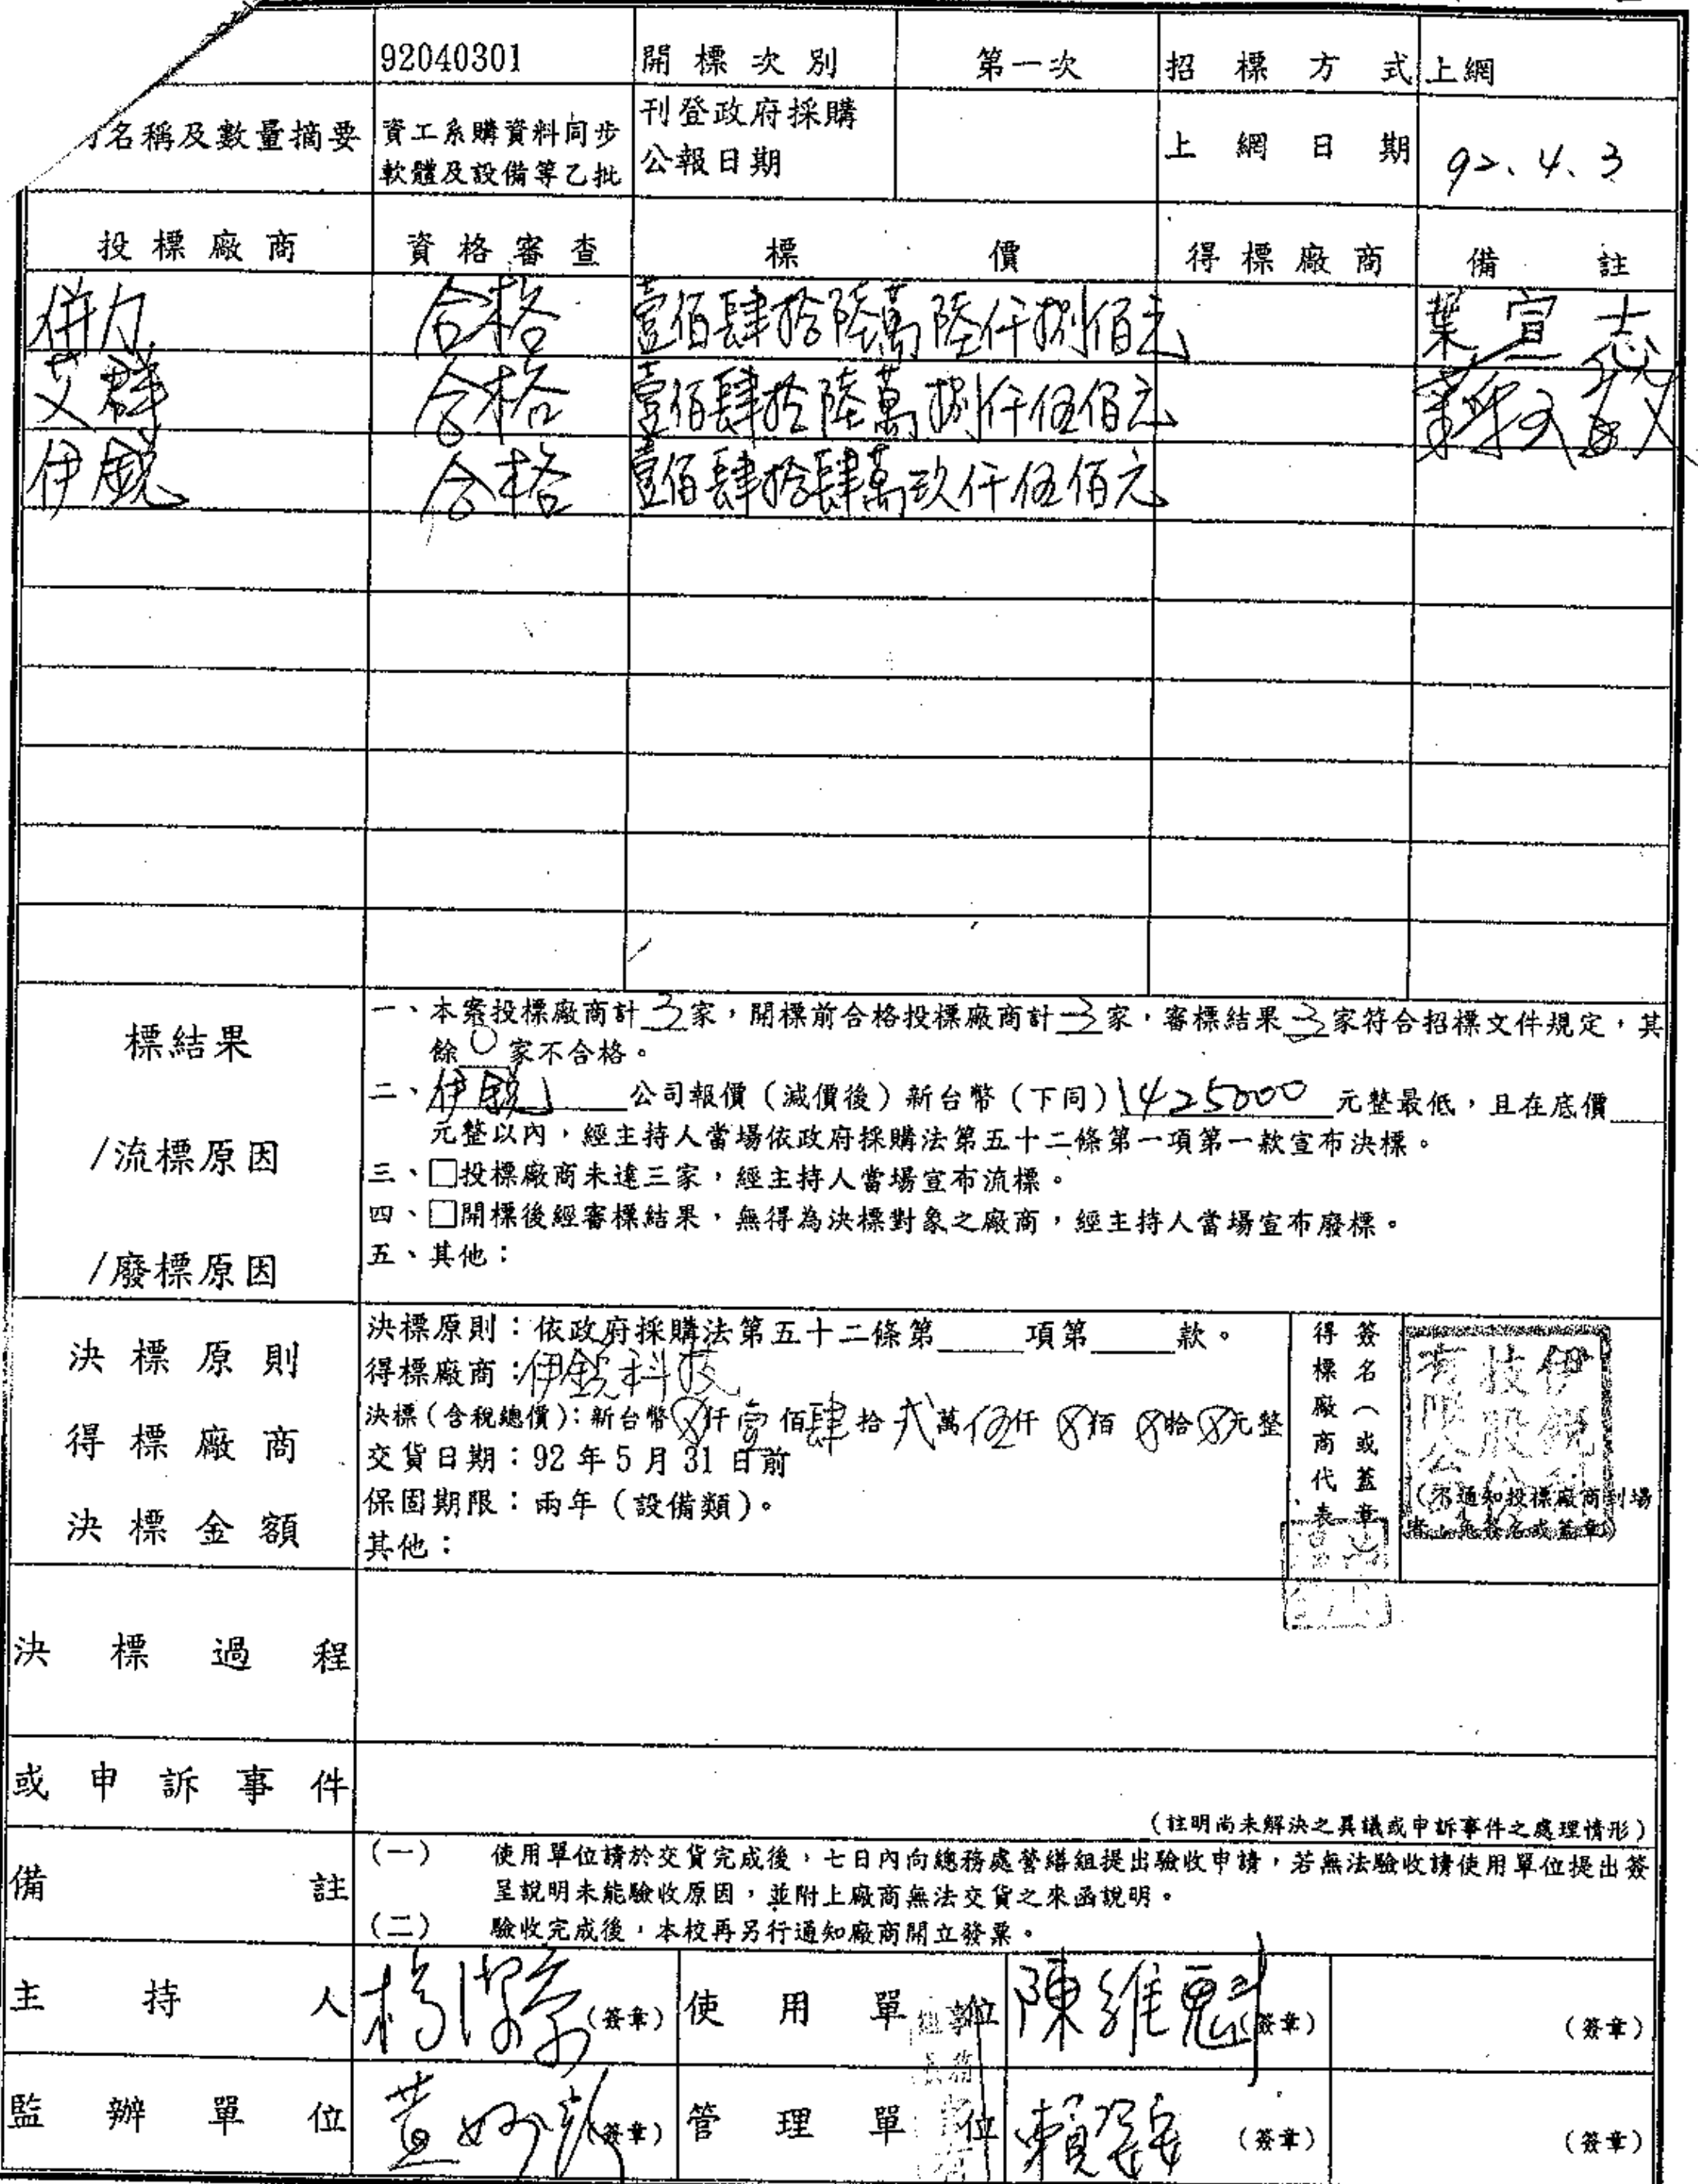 92040301 開標次別 第一次 招標方式 上網
名稱及數量摘要 資工系購資料同步軟體及設備等乙批 刊登政府採購公報日期 上網日期 92、4、3
投標廠商 資格審查 標價 得標廠商 備註
併力 合格 壹佰肆拾陸萬陸仟捌佰元 葉宣志
艾群 合格 壹佰肆拾陸萬捌仟伍佰元
伊銳 合格 壹佰肆拾肆萬玖仟伍佰元
標結果
/流標原因
/廢標原因
一、本案投標廠商計3家，開標前合格投標廠商計3家，審標結果3家符合招標文件規定，其
餘0家不合格。
二、伊銳公司報價（減價後）新台幣（下同）1425000元整最低，且在底價
元整以內，經主持人當場依政府採購法第五十二條第一項第一款宣布決標。
三、□投標廠商未達三家，經主持人當場宣布流標。
四、□開標後經審標結果，無得為決標對象之廠商，經主持人當場宣布廢標。
五、其他：
決標原則
得標廠商
決標金額
決標原則：依政府採購法第五十二條第 項第 款。
得標廠商：伊銳科技
決標（含稅總價）：新台幣 仟壹佰肆拾貳萬伍仟 佰 拾 元整
交貨日期：92年5月31日前
保固期限：兩年（設備類）。
其他：
得標廠商代表
簽名（或蓋章
伊銳科技股份有限公司
（不通知投標廠商到場
者，免簽名或蓋章）
決標過程
或申訴事件
（註明尚未解決之異議或申訴事件之處理情形）
備註
（一） 使用單位請於交貨完成後，七日內向總務處營繕組提出驗收申請，若無法驗收請使用單位提出簽
呈說明未能驗收原因，並附上廠商無法交貨之來函說明。
（二） 驗收完成後，本校再另行通知廠商開立發票。
主持人 （簽章） 使用單位 陳維魁 （簽章） （簽章）
監辦單位 （簽章） 管理單位 （簽章） （簽章）